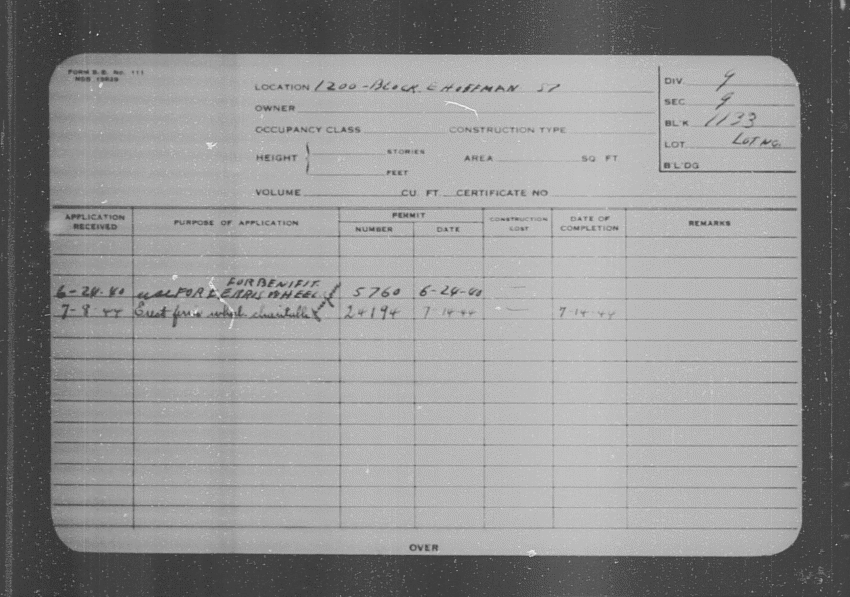 FORM B.B. No. 111
LOCATION 1200-BLOCK. E HOFFMAN ST
OWNER
OCCUPANCY CLASS CONSTRUCTION TYPE
HEIGHT STORIES FEET AREA SQ FT
VOLUME CU. FT. CERTIFICATE NO
DIV. 9
SEC 9
BL'K 1133
LOT LOT NO.
B'L'DG
APPLICATION RECEIVED PURPOSE OF APPLICATION PERMIT NUMBER DATE CONSTRUCTION COST DATE OF COMPLETION REMARKS
FOR BENIFIT
6-24-40 FERRIS WHEEL 5760 6-24-40 —
7-8-44 Erect ferris wheel charitable 24194 7-14-44 — 7-14-44
OVER